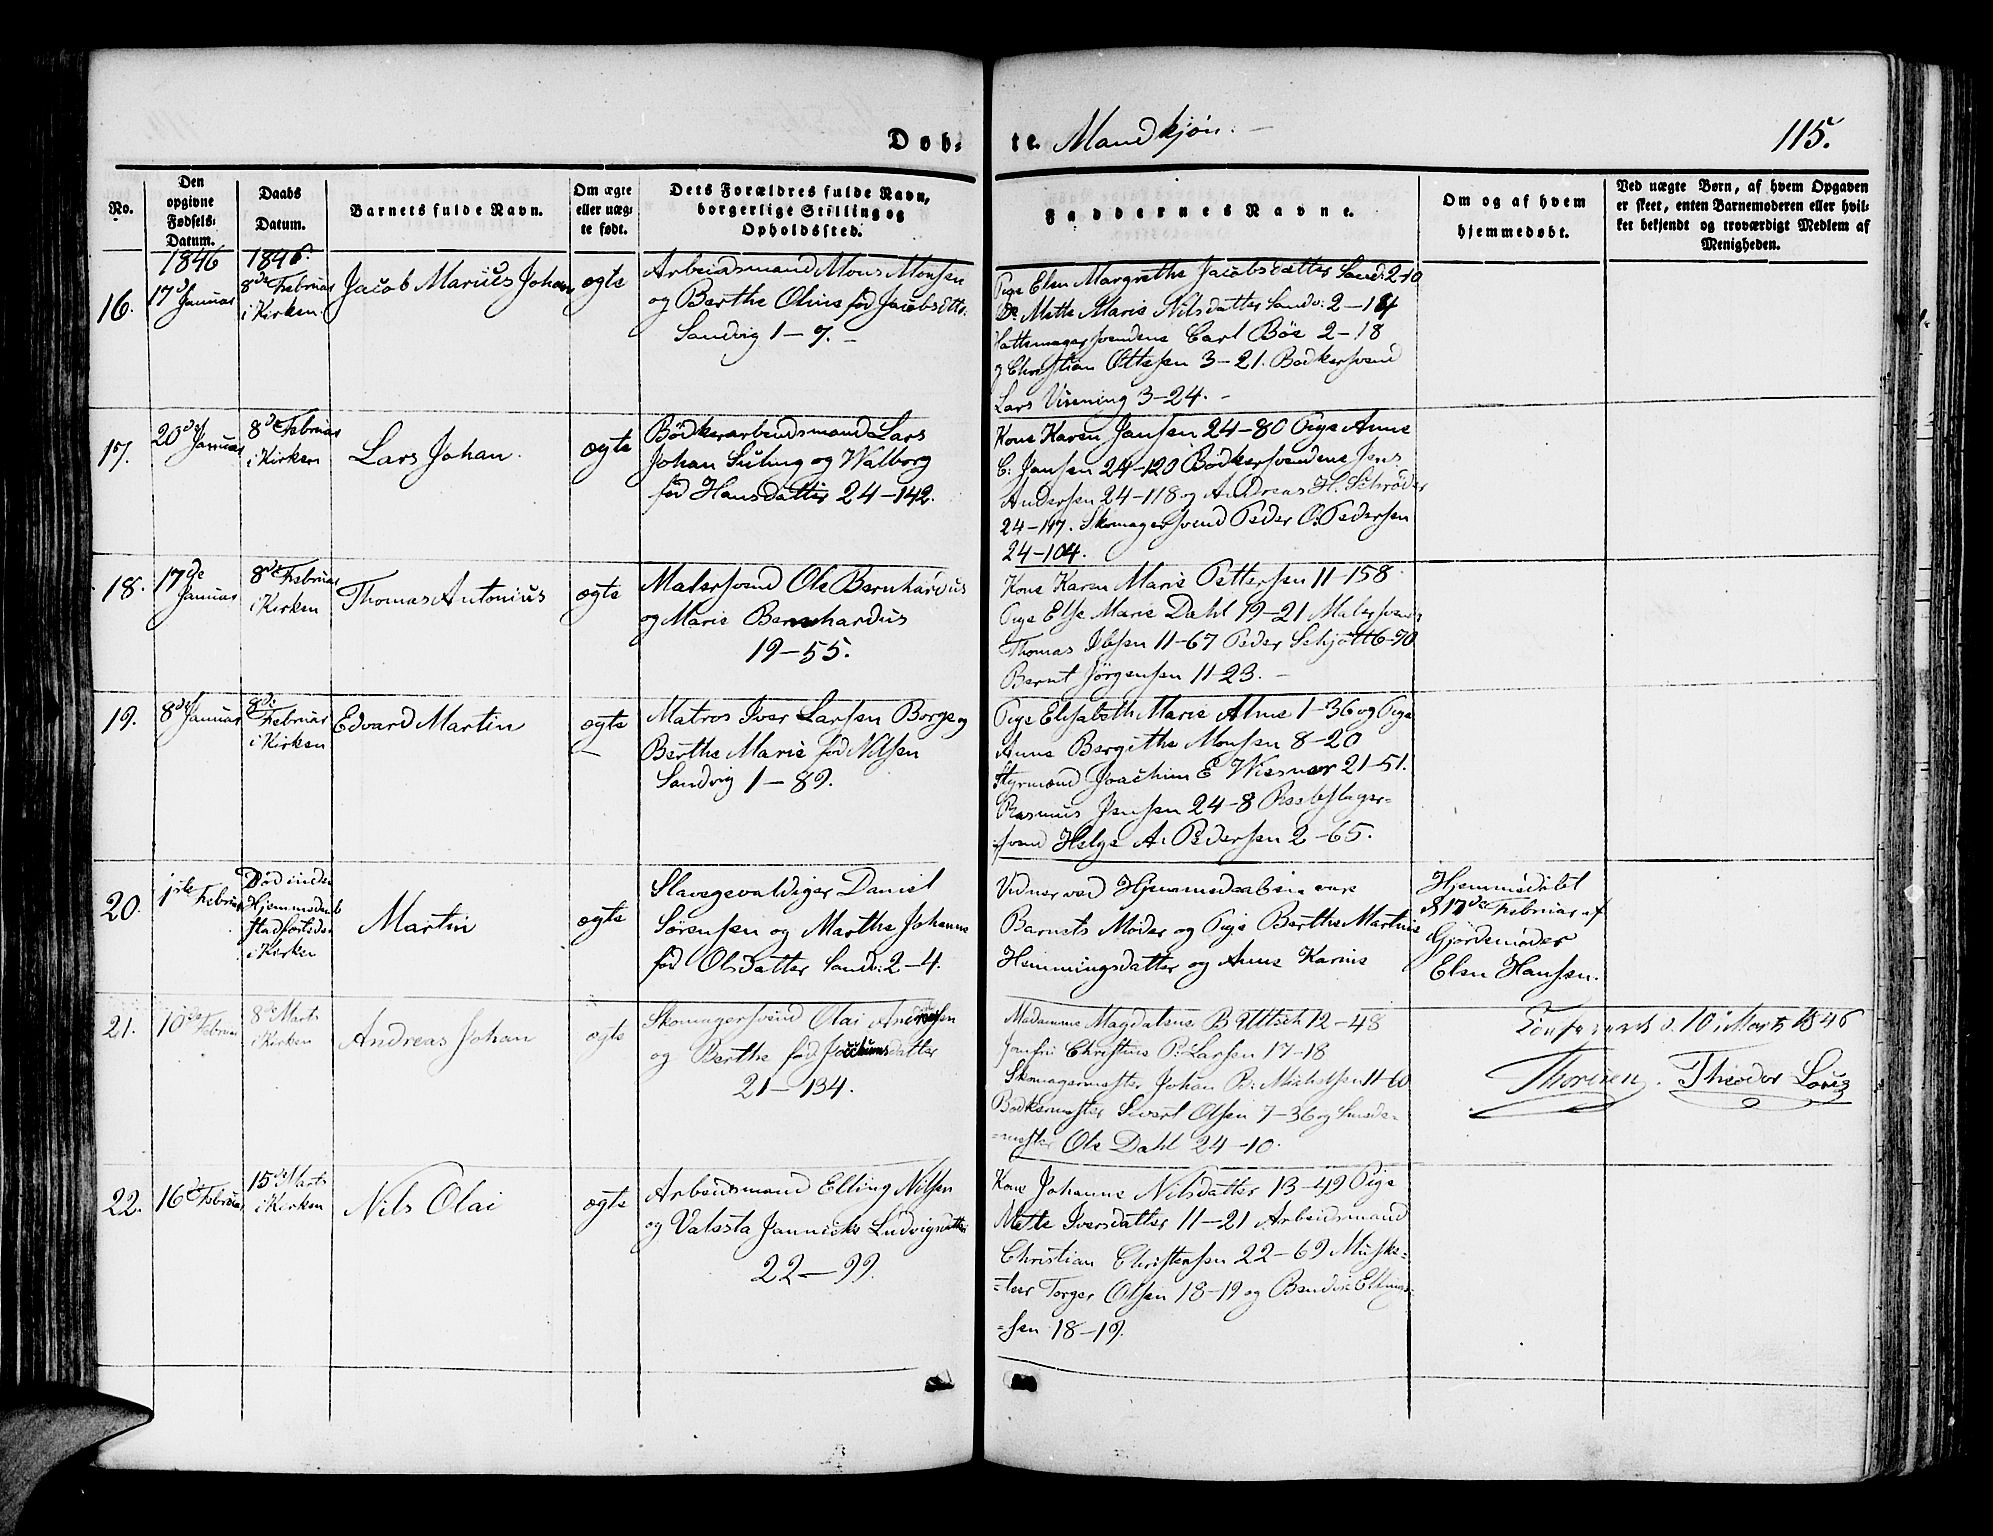 Døb- te. Mandkjøn. 115.
No.
Den opgivne Fødsels-Datum.
Daabs Datum.
Barnets fulde Navn.
Om ægte eller uæg-te født.
Dets Forældres fulde Navn, borgerlige Stilling og Opholdssted.
Faddernes Navne.
Om og af hvem hjemmedøbt.
Ved uægte Børn, af hvem Opgaven er skeet, enten Barnemoderen eller hvil-ket bekjendt og troværdigt Medlem af Menigheden.
1846 1846.
16.
17de Januar
8de Februar i Kirken.
Jacob Marius Johan
ægte
Arbeidsmand Mons Monsen
og Berthe Oline fød Jacobsdtr.
Sandvig 1-7.
Pige Elen Margrethe Jacobsdatter Sand: 2-10
Do Mette Marie Nilsdatter Sandv: 2-14
Hattemagersvendene Carl Böe 2-18
og Christian Ottesen 3-21. Bødkersvend
Lars 3-24.
17.
20de Januar
8de Februar i Kirken
Lars Johan.
ægte
Bödkerarbeidsmand Lars
Johan Suling og Walborg
fød Hansdatter 24-142.
Kone Karen Jansen 24-80 Pige Anne
C: Jansen 24-120 Bødkersvendene Jens
Andersen 24-118 og Andreas H. Schrøder
24-117. Skomagersvend Peder O. Pedersen
24-104.
18.
17de Januar
8de Februar i Kirken
Thomas Antonius
ægte
Malersvend Ole Bernhardus
og Marie Bernhardus
19-55.
Kone Karen Marie Pettersen 11-158.
Pige Else Marie Dahl 19-21 Malersvend
Thomas Ibsen 11-67 Peder Schjött 6-70
Bernt Jörgensen 11-23.
19.
8de Januar
8de Februar i Kirken
Edvard Martin
ægte
Matros Iver Larsen Borge og
Berthe Marie fød Nilsen
Sandvig 1-89.
Pige Elisabeth Marie Alme 1-36 og Pige
Anne Bergithe Monsen 8-20
Styrmand Joachim E Wiesner 21-51.
Rasmus Jensen 24-8 Reebslager-
svend Helge A: Pedersen 2-65.
20.
1ste Februar
Død inden
Hjemmedaab
stadfæstedes
i Kirken
Martin
ægte
Slavegevaldiger Daniel
Sörensen og Marthe Johanne
fød Olsdatter Sandv: 2-4.
Vidner ved Hjemmedaaben vare
Barnets Moder og Pige Berthe Martine
Hemmingsdatter og Anne Karine
Hjemmedøbt
d 17de Februar af
Gjordemoder
Elen Hansen.
21.
10de Februar
8de Marts i Kirken
Andreas Johan
ægte
Skomagersvend Olai Andresen
og Berthe fød Jochumsdatter
21-134.
Madamme Magdalene B 12-48
Jomfru Christine P: Larsen 17-18
Skomagermester Johan R: Michelsen 11-60
Bødkermester Sivert Olsen 7-36 og Smede-
=mester Ole Dahl 24-10.
Conf d. 10 Marts 1846
Thorsen. Theodor
22.
16de Februar
15de Marts i Kirken
Nils Olai
ægte
Arbeidsmand Elling Nilsen
og Valesta Jannicke Ludvigsdatter
22-99.
Kone Johanne Nilsdatter 13-49 Pige
Mette Iversdatter 11-21 Arbeidsmand
Christian Christensen 22-69 Muske=
=teer Torger Olsen 18-19 og Elling
=sen 18-19.